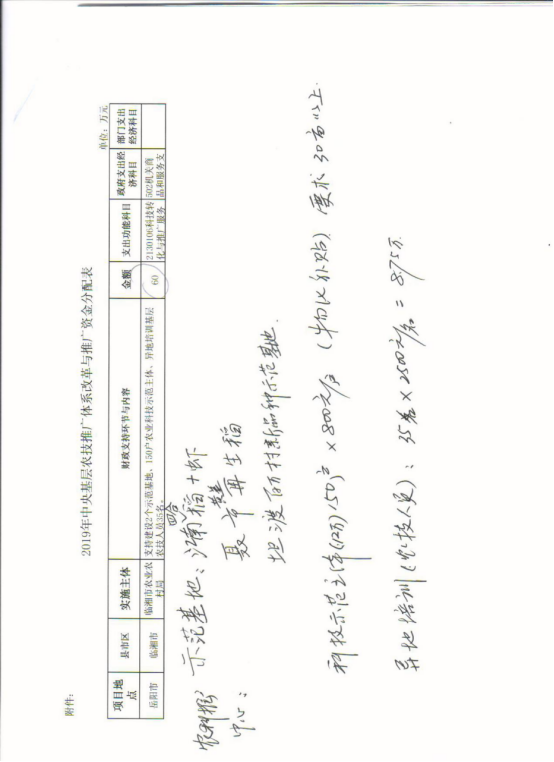 附件：
2019年中央基层农技推广体系改革与推广资金分配表
单位：万元
项目地点 县市区 实施主体 财政支持环节与内容 金额 支出功能科目 政府支出经济科目 部门支出经济科目
岳阳市 临湘市 临湘市农业农村局 支持建设2个示范基地、150户农业科技示范主体、异地培训基层农技人员35名。 60 2130106科技转化与推广服务 502机关商品和服务支
农科推广中心：
示范基地：江南稻+虾
聂市 再生稻
坦渡 村新品种示范基地.
科技示范主体(12万)150户×800元/户 (物化补贴) 要求30亩以上.
异地培训(农技人员)：35名×2500元/名=8.75万.